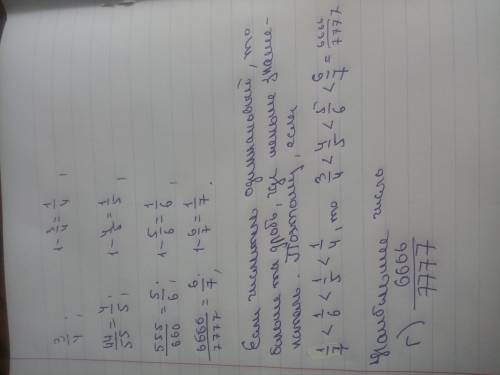 3/4; 1-3/4=1/4;
44/55=4/5; 1-4/5=1/5;
555/660=5/6; 1-5/6=1/6;
6666/7777=6/7; 1-6/7=1/7.
Если числитель одинаковый, то
больше та дробь, где меньше знаме-
натель. Поэтому, если
1/7<1/6<1/5<1/4, то 3/4<4/5<5/6<6/7=6666/7777
Наибольшее число
г) 6666/7777